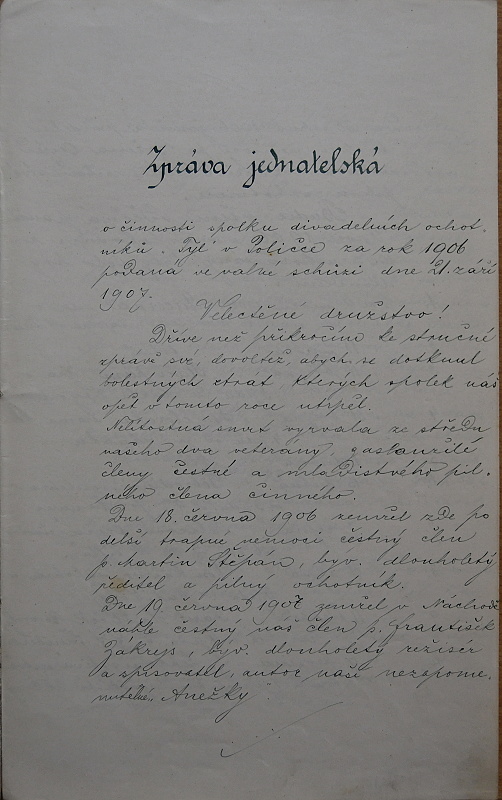 Zpráva jednatelská
o činnosti spolku divadelních ochot-
níků „Tyl" v Poličce za rok 1906
podaná ve valné schůzi dne 21. září
1907.
Velectěné družstvo!
Dříve než přikročím ke stručné
zprávě své, dovoltež, abych se dotknul
bolestných ztrát, kterých spolek náš
opět v tomto roce utrpěl.
Nelítostná smrt vyrvala ze středu
našeho dva veterány, zasloužilé
členy čestné a mladistvého pil-
ného člena činného.
Dne 18. června 1906 zemřel zde po
delší trapné nemoci čestný člen
p. Martin Štěpán, býv. dlouholetý
ředitel a pilný ochotník.
Dne 19. června 1907 zemřel v Náchodě
náhle čestný náš člen p. František
Zakrejs, býv. dlouholetý režisér
a spisovatel, autor naší nezapome-
nutelné „Anežky".